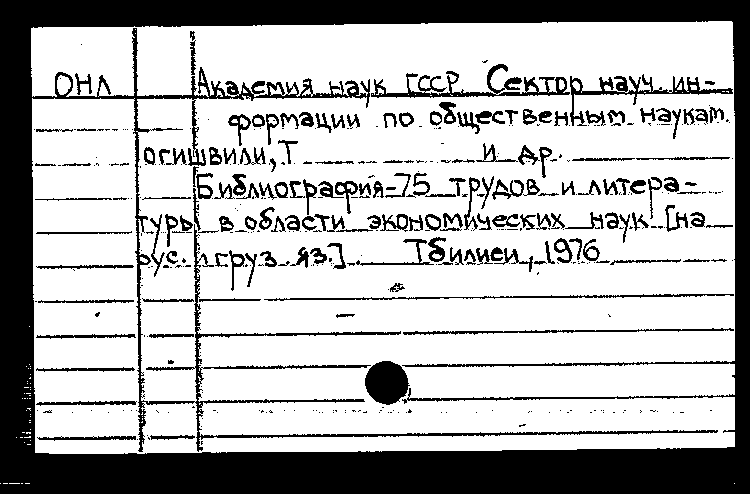 ОНЛ Академия наук ГССР Сектор науч ин-
формации по общественным наукам.
огишвили, Т и др.
Библиография-75 трудов и литера-
туры в области экономических наук [на
рус. и груз. яз.] Тбилиси, 1976